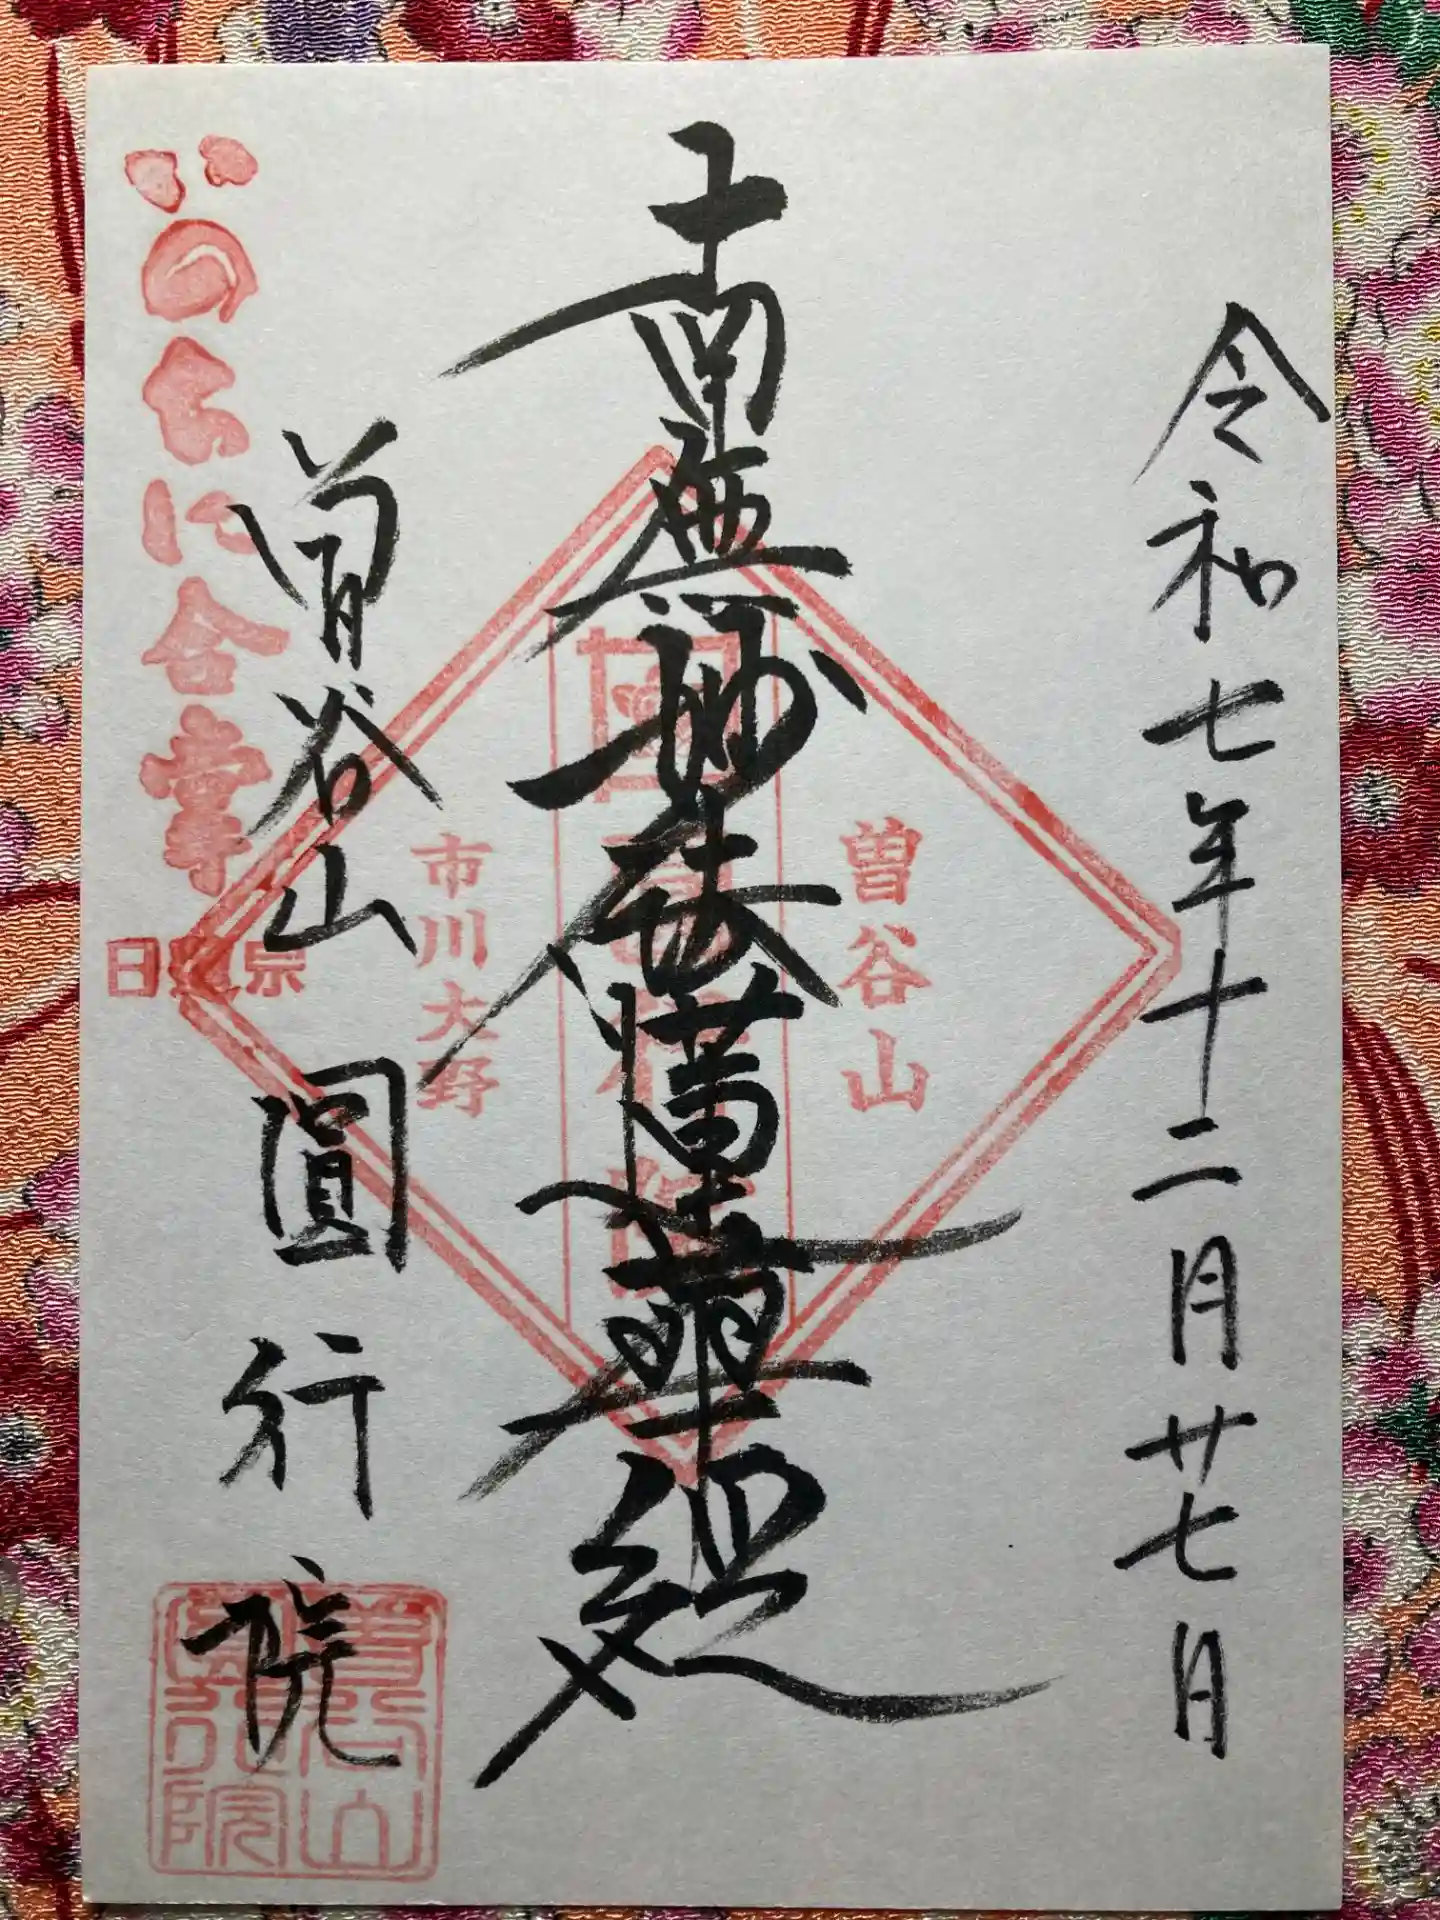 令和七年十二月廿七日
南無妙法蓮華経
曽谷山
市川大野
曽谷山 圓行院
いのちに合掌
日蓮宗
曽谷山
圓行院